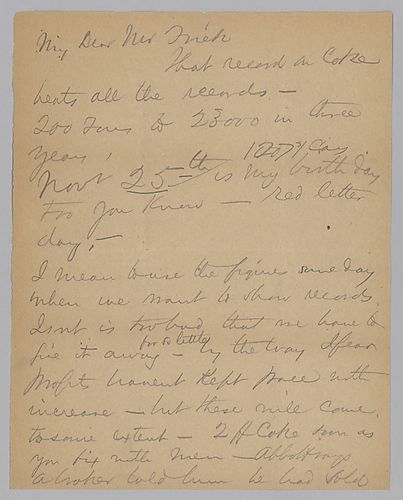 My Dear Mr Frick
That record on Coke
beats all the records —
200 Tons to 23000 in three
years,
Novr 25th is my birthday
Too you Know — red letter
day, —
I mean to use the figures some day
when we want to show records.
Isnt is too bad that we have to
give it away — by the way I fear
for so little
profits havent Kept pace with
increase — but these will come
to some extent — 2 ff Coke soon as
you fix with men — Abbott says
a broker told him he had sold